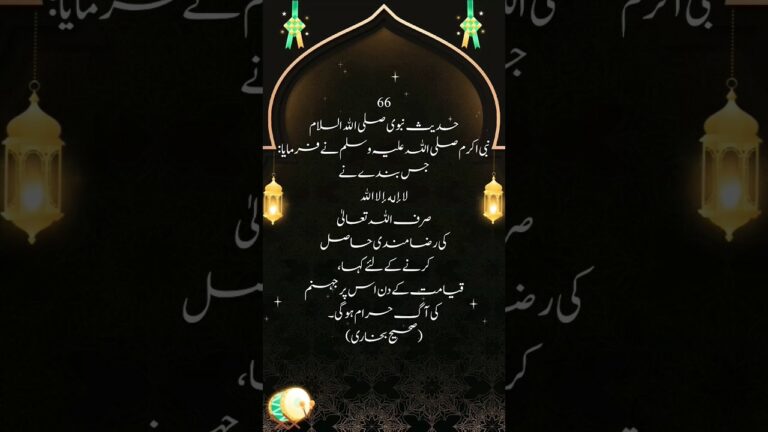 66
حدیث نبوی صلی اللہ السلام
نبی اکرم صلی اللہ علیہ وسلم نے فرمایا:
جس بندے نے
لا إله إلا الله
صرف اللہ تعالیٰ
کی رضا مندی حاصل
کرنے کے لئے کہا،
قیامت کے دن اس پر جہنم
کی آگ حرام ہوگی۔
(صحیح بخاری)